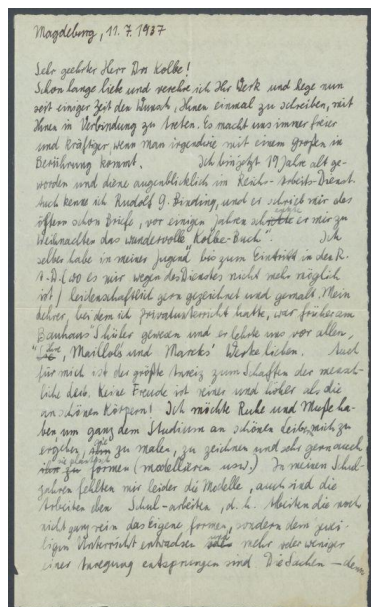 Magdeburg, 11.7.1937
Sehr geehrter Herr Dr. Kolbe!
Schon lange liebe und verehre ich Ihr Werk und hege nun
seit einiger Zeit den Wunsch, Ihnen einmal zu schreiben, mit
Ihnen in Verbindung zu treten. Es macht uns immer freier
und kräftiger wenn man irgendwie mit einem Großen in
Berührung kommt. Ich bin jetzt 19 Jahre alt ge-
worden und diene augenblicklich im Reichs-Arbeits-Dienst.
Auch kenne ich Rudolf G. Binding, und er schrieb mir des
öftern schon Briefe, vor einigen Jahren er mir zu
Weihnachten das wundervolle "Kolbe-Buch". Ich
selber habe in meiner Jugend bis zum Eintritt in den R.
A.D. (wo es mir wegen des Dienstes nicht mehr möglich
ist) leidenschaftlich gern gezeichnet und gemalt. Mein
Lehrer, bei dem ich Privatunterricht hatte, war früher am
"Bauhaus" Schüler gewesen und er lehrte uns vor allem,
Ihre, Maillols und Marcks' Werke lieben. Auch
für mich ist der größte Anreiz zum Schaffen der mensch-
liche Leib. Keine Freude ist reiner und höher als die
an schönen Körpern! Ich möchte Ruhe und Muße ha-
ben, um ganz dem Studium an schönen Leibern mich zu
ergeben, sie zu malen, zu zeichnen und sehr gern auch
sie plastisch zu formen (modellieren usw.) In meinen Schul-
jahren fehlten mir leider die Modelle, auch sind die
Arbeiten den Schul-arbeiten, d.h. Arbeiten die noch
nicht ganz rein das Eigene formen, sondern dem
Unterricht entwachsen mehr oder weniger
einer Anregung entsprungen sind. Die Sachen –